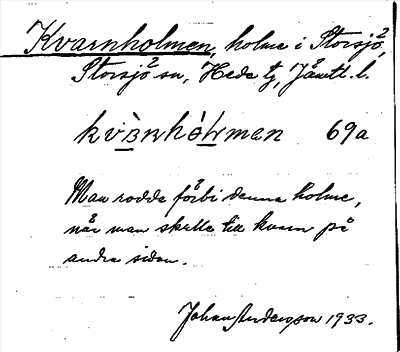 Kvarnholmen, holme i Storsjö,
Storsjö sn, Hede tg, Jämtl. l.
69a
Man rodde förbi denna holme,
när man skulle till kvarn på
andra sidan.
Johan Andersson 1933.